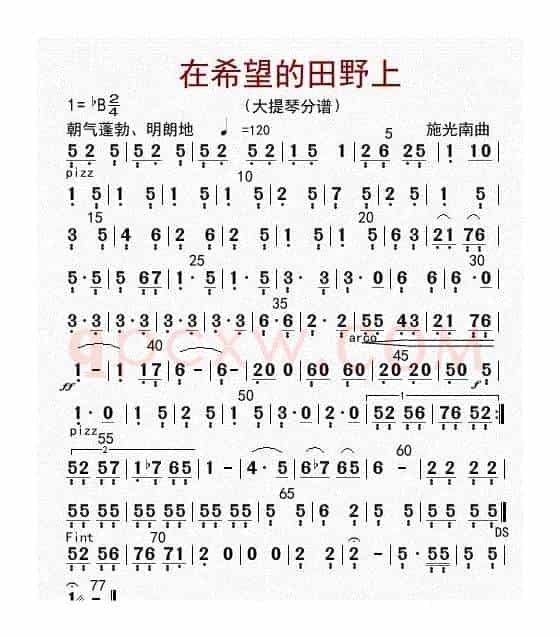 在希望的田野上
1=♭B 2/4 （大提琴分谱）
朝气蓬勃、明朗地 ♩=120 5 施光南曲
5 2 5 | 5 2 5 | 5 2 5 2 | 1 5 1 | 2 6 25 | 1 10
pizz 10
1 5 | 1 5 | 1 5 | 1 5 | 2 5 | 7 5 | 2 5 | 1 5
15 20
3 5 | 4 6 | 2 6 | 2 5 | 1 5 | 1 5 | 6 3 | 21 76
25 30
5·5 | 5 67 | 1·5 | 1·5 | 3·3 | 3·0 | 6 6 | 6·0
35
3·3 | 3·3 | 3·3 | 3·3 | 6·6 | 2·2 | 55 43 | 21 76
arco
40 45
1- | 1 17 | 6- | 6- | 20 0 | 60 60 | 20 20 | 50 5
ff sf
50 1
1·0 | 1 5 | 2 5 | 1 5 | 3·0 | 2·0 | 52 56 | 76 52 :||
pizz 55
2 60
52 57 | 1♭7 65 | 1 - | 4·5 | 6♭7 65 | 6 - | 2 22 | 2 22
65
55 55 | 55 55 | 55 55 | 5 5 | 6 2 | 5 5 | 5 5 | 5 0
Fint 70 DS
52 56 | 76 71 | 2 0 | 0 0 | 2 2 | 2 - | 5·55 | 5 5
77
1 - ||
qpcxw.COM